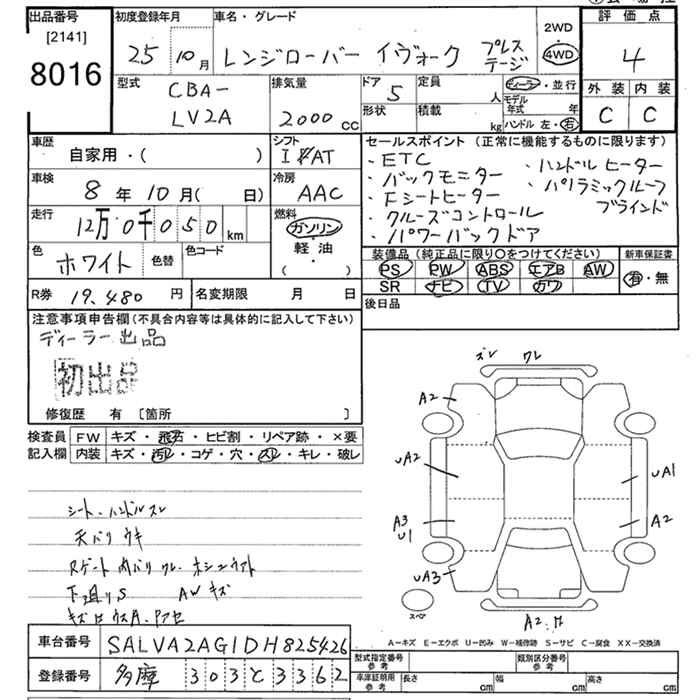 出品番号
[2141]
8016
初度登録年月
25 10月
車名・グレード
レンジローバー イヴォーク プレステージ
2WD
・
4WD
評価点
4
外装 内装
C C
型式
CBA-
LV2A
排気量
2000 CC
ドア 5
形状
定員 人
積載 kg
ディーラー・並行
モデル年式 年
ハンドル 左・右
車歴
自家用・( )
シフト
I AT
車検
8年10月( 日)
冷房
AAC
走行
12万0千050 km
燃料
ガソリン
・
軽油
・
( )
色
ホワイト
色替
色コード
R券 19,480円
名変期限 月 日
セールスポイント(正常に機能するものに限ります)
・ETC
・ハンドルヒーター
・バックモニター
・パノラミックルーフ
・Fシートヒーター
ブラインド
・クルーズコントロール
・パワーバックドア
装備品(純正品に限り○をつけてください)
新車保証書
PS PW ABS エアB AW
有・無
SR ナビ TV カワ
後日品
注意事項申告欄(不具合内容等は具体的に記入して下さい)
ディーラー出品
初出品
修復歴 有 [箇所 ]
検査員
記入欄
FW キズ・飛石・ヒビ割・リペア跡・×要
内装 キズ・汚レ・コゲ・穴・スレ・キレ・破レ
シート・ハンドルスレ
天バリ ウキ
Rゲート内バリ ワレ・
下廻りS AWキズ
ズレ ワレ
A2
UA2
UA1
A3
U1
A2
UA3
スペア
A2
A=キズ E=エクボ U=凹み W=補修跡 S=サビ C=腐食 XX=交換済
車台番号 SALVA2AG1DH825426
登録番号 多摩 303と3362
型式指定番号 参考
類別区分番号 参考
車庫証明用 参考
長さ cm
幅 cm
高さ cm